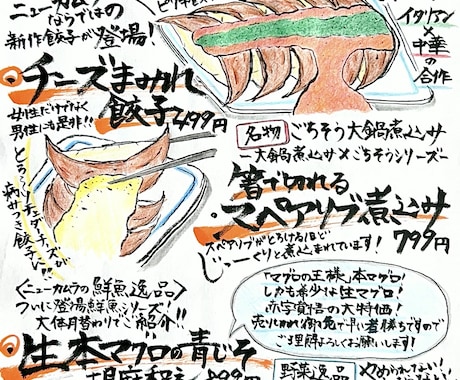 ニューカムラ
ならではの
新作餃子が登場!
イタリアン
×
中華
の
合作
チーズまみれ
餃子499円
女性だけでなく
男性にも是非!!
とろ〜りチェダーチーズが
病みつき餃子に!!
名物 ごちそう大鍋煮込み
ー大鍋煮込み×ごちそうシリーズー
箸で切れる
スペアリブ煮込み
799円
スペアリブがとろけるほど
じっーくりと煮込まれています!
〈ニューカムラの鮮魚逸品〉
ついに登場鮮魚シリーズ
大体月替わりでご紹介!!
生本マグロの青じそ
胡麻和え
99円
「マグロの王様、本マグロ!
しかも希少な生マグロ!
赤字覚悟の大特価!
売り切れ御免で早い者勝ちですので
ご理解よろしくお願いします!
野菜逸品